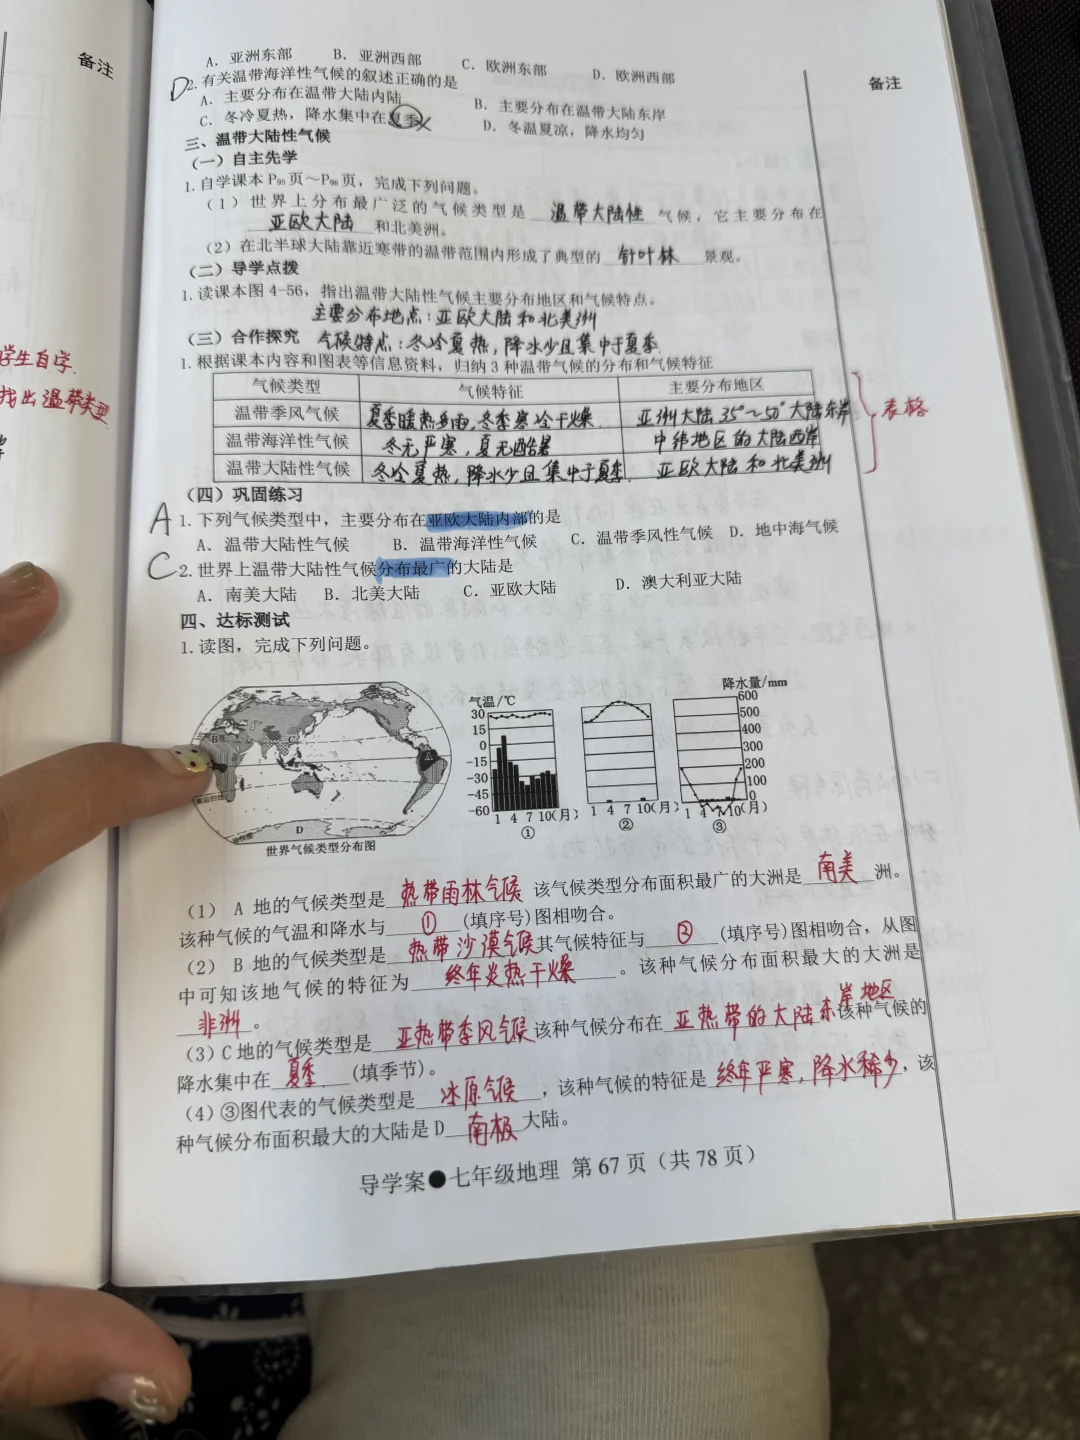 备注
学生自学.
找出温带类型
A. 亚洲东部 B. 亚洲西部 C. 欧洲东部 D. 欧洲西部
备注
D 2. 有关温带海洋性气候的叙述正确的是
A. 主要分布在温带大陆内陆 B. 主要分布在温带大陆东岸
C. 冬冷夏热，降水集中在夏季 D. 冬温夏凉，降水均匀
三、温带大陆性气候
（一）自主先学
1. 自学课本 P95 页～P96 页，完成下列问题。
（1）世界上分布最广泛的气候类型是 温带大陆性 气候，它主要分布在
亚欧大陆 和北美洲。
（2）在北半球大陆靠近寒带的温带范围内形成了典型的 针叶林 景观。
（二）导学点拨
1. 读课本图 4-56，指出温带大陆性气候主要分布地区和气候特点。
主要分布地点：亚欧大陆和北美洲
（三）合作探究 气候特点：冬冷夏热，降水少且集中于夏季.
1. 根据课本内容和图表等信息资料，归纳 3 种温带气候的分布和气候特征
气候类型 气候特征 主要分布地区
温带季风气候 夏季暖热多雨，冬季寒冷干燥. 亚洲大陆 35°～50° 大陆东岸
温带海洋性气候 冬无严寒，夏无酷暑 中纬地区的大陆西岸
温带大陆性气候 冬冷夏热，降水少且集中于夏季. 亚欧大陆和北美洲
表格
（四）巩固练习
A 1. 下列气候类型中，主要分布在亚欧大陆内部的是
A. 温带大陆性气候 B. 温带海洋性气候 C. 温带季风性气候 D. 地中海气候
C 2. 世界上温带大陆性气候分布最广的大陆是
A. 南美大陆 B. 北美大陆 C. 亚欧大陆 D. 澳大利亚大陆
四、达标测试
1. 读图，完成下列问题。
气温/℃ 降水量/mm
30 600
15 500
0 400
-15 300
-30 200
-45 100
-60 0
1 4 7 10(月) 1 4 7 10(月) 1 4 7 10(月)
① ② ③
B C A
D
世界气候类型分布图
（1） A 地的气候类型是 热带雨林气候 该气候类型分布面积最广的大洲是 南美 洲。
该种气候的气温和降水与 ① (填序号)图相吻合。
（2） B 地的气候类型是 热带沙漠气候 其气候特征与 ② (填序号)图相吻合，从图
中可知该地气候的特征为 终年炎热干燥 。该种气候分布面积最大的大洲是
非洲 。
（3）C 地的气候类型是 亚热带季风气候 该种气候分布在 亚热带的大陆东岸地区 该种气候的
降水集中在 夏季 (填季节)。
（4）③图代表的气候类型是 冰原气候 ，该种气候的特征是 终年严寒，降水稀少 ，该
种气候分布面积最大的大陆是 D 南极 大陆。
导学案●七年级地理 第 67 页（共 78 页）